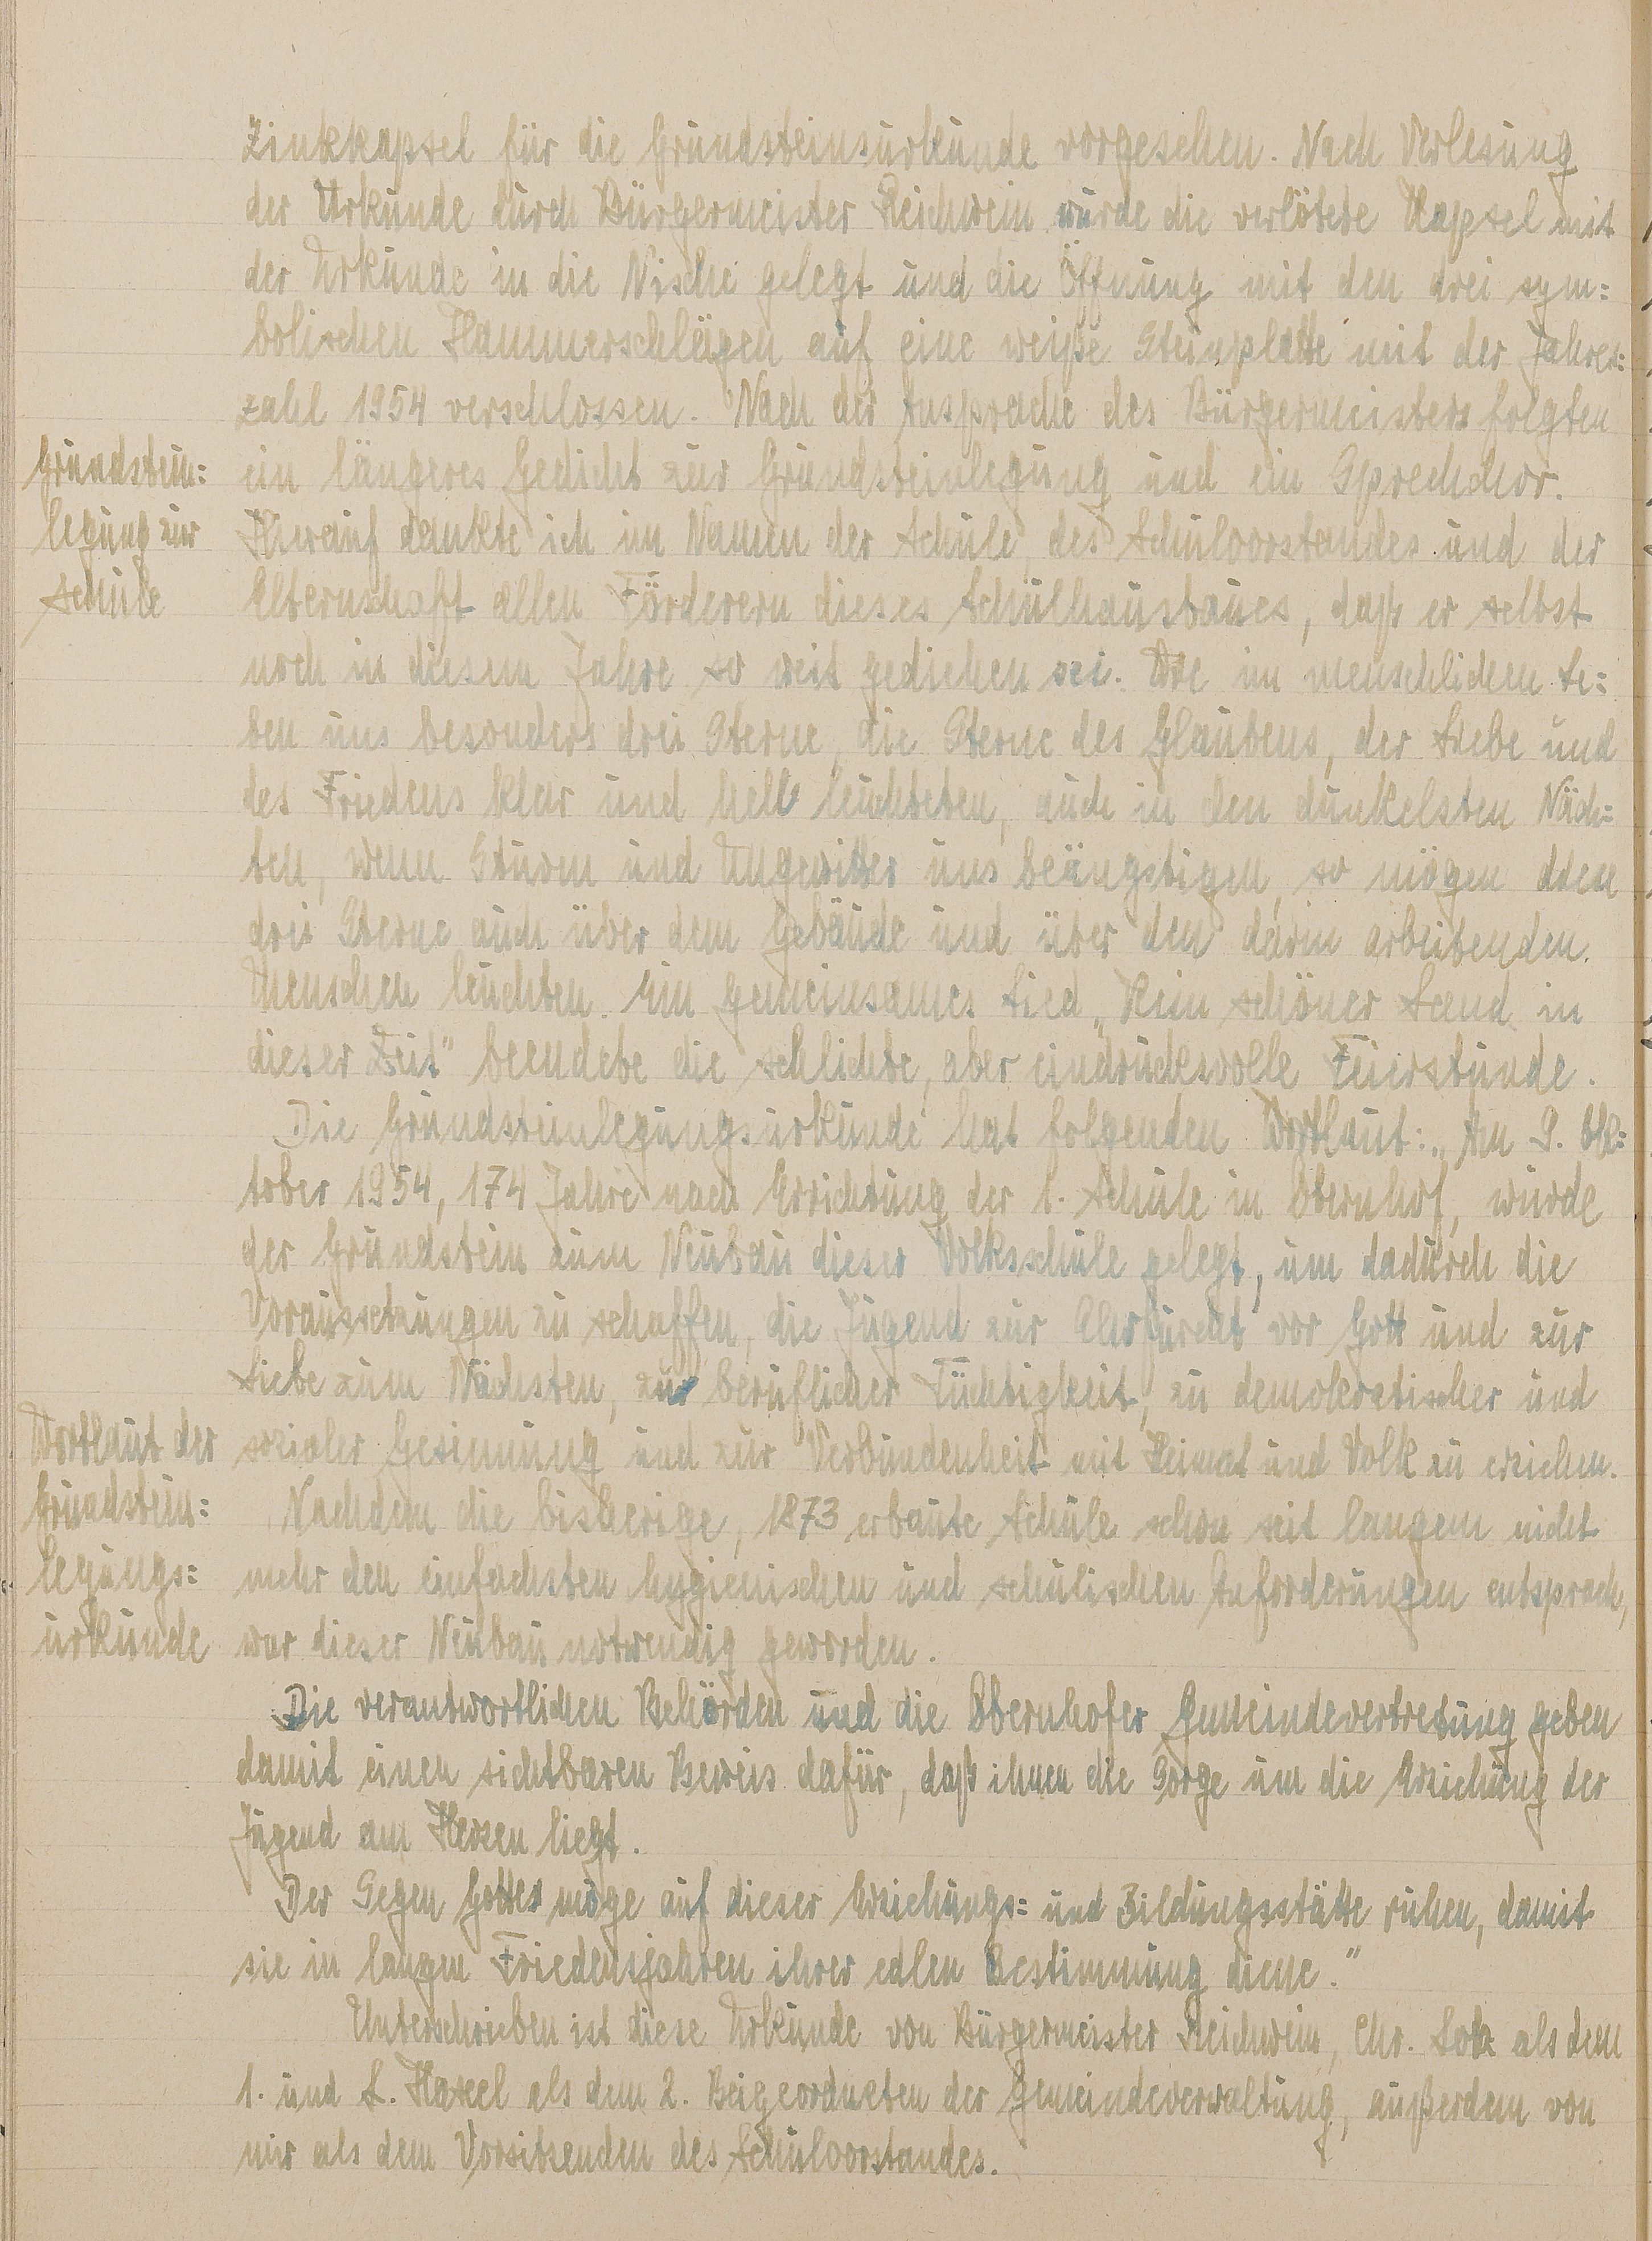 Zinkkapsel für die Grundsteinsurkunde vorgesehen. Nach Verlesung
der Urkunde durch Bürgermeister Reichwein wurde die verlötete Kapsel mit
der Urkunde in die Nische gelegt und die Öffnung mit den drei sym=
bolischen Hammerschlägen auf eine weiße Steinplatte mit der Jahres=
zahl 1954 verschlossen. Nach der Ansprache des Bürgermeisters folgten
Grundstein=
legung zur
Schule
ein längeres Gedicht zur Grundsteinlegung und ein Sprechchor.
Hierauf dankte ich im Namen der Schule, des Schulvorstandes und der
Elternschaft allen Förderern dieses Schulhausbaues, daß er selbst
noch in diesem Jahre so weit gediehen sei. Wie im menschlichen Le=
ben uns besonders drei Sterne, die Sterne des Glaubens, der Liebe und
des Friedens klar und hell leuchteten, auch in den dunkelsten Näch=
ten, wenn Sturm und Ungewitter uns beängstigen, so mögen diese
drei Sterne auch über dem Gebäude und über den darin arbeitenden
Menschen leuchten. Ein gemeinsames Lied „Kein schöner Land in
dieser Zeit" beendete die schlichte, aber eindrucksvolle Feierstunde.
Die Grundsteinlegungsurkunde hat folgenden Wortlaut: „Am 9. Ok=
tober 1954, 174 Jahre nach Errichtung der 1. Schule in Obernhof, wurde
der Grundstein zum Neubau dieser Volksschule gelegt, um dadurch die
Voraussetzungen zu schaffen, die Jugend zur Ehrfurcht vor Gott und zur
Liebe zum Nächsten, zur beruflicher Tüchtigkeit, zu demokratischer und
Wortlaut der
Grundstein=
legungs=
urkunde
sozialer Gesinnung und zur Verbundenheit mit Heimat und Volk zu erziehen.
Nachdem die bisherige, 1873 erbaute Schule schon seit langem nicht
mehr den einfachsten hygienischen und schulischen Anforderungen entsprach,
war dieser Neubau notwendig geworden.
Die verantwortlichen Behörden und die Obernhofer Gemeindevertretung geben
damit einen sichtbaren Beweis dafür, daß ihnen die Sorge um die Erziehung der
Jugend am Herzen liegt.
Der Segen Gottes möge auf dieser Erziehungs= und Bildungsstätte ruhen, damit
sie in langen Friedensjahren ihrer edlen Bestimmung diene."
Unterschrieben ist diese Urkunde von Bürgermeister Reichwein, Chr. Lotz als dem
1. und L. Haxel als dem 2. Beigeordneten der Gemeindeverwaltung, außerdem von
mir als dem Vorsitzenden des Schulvorstandes.